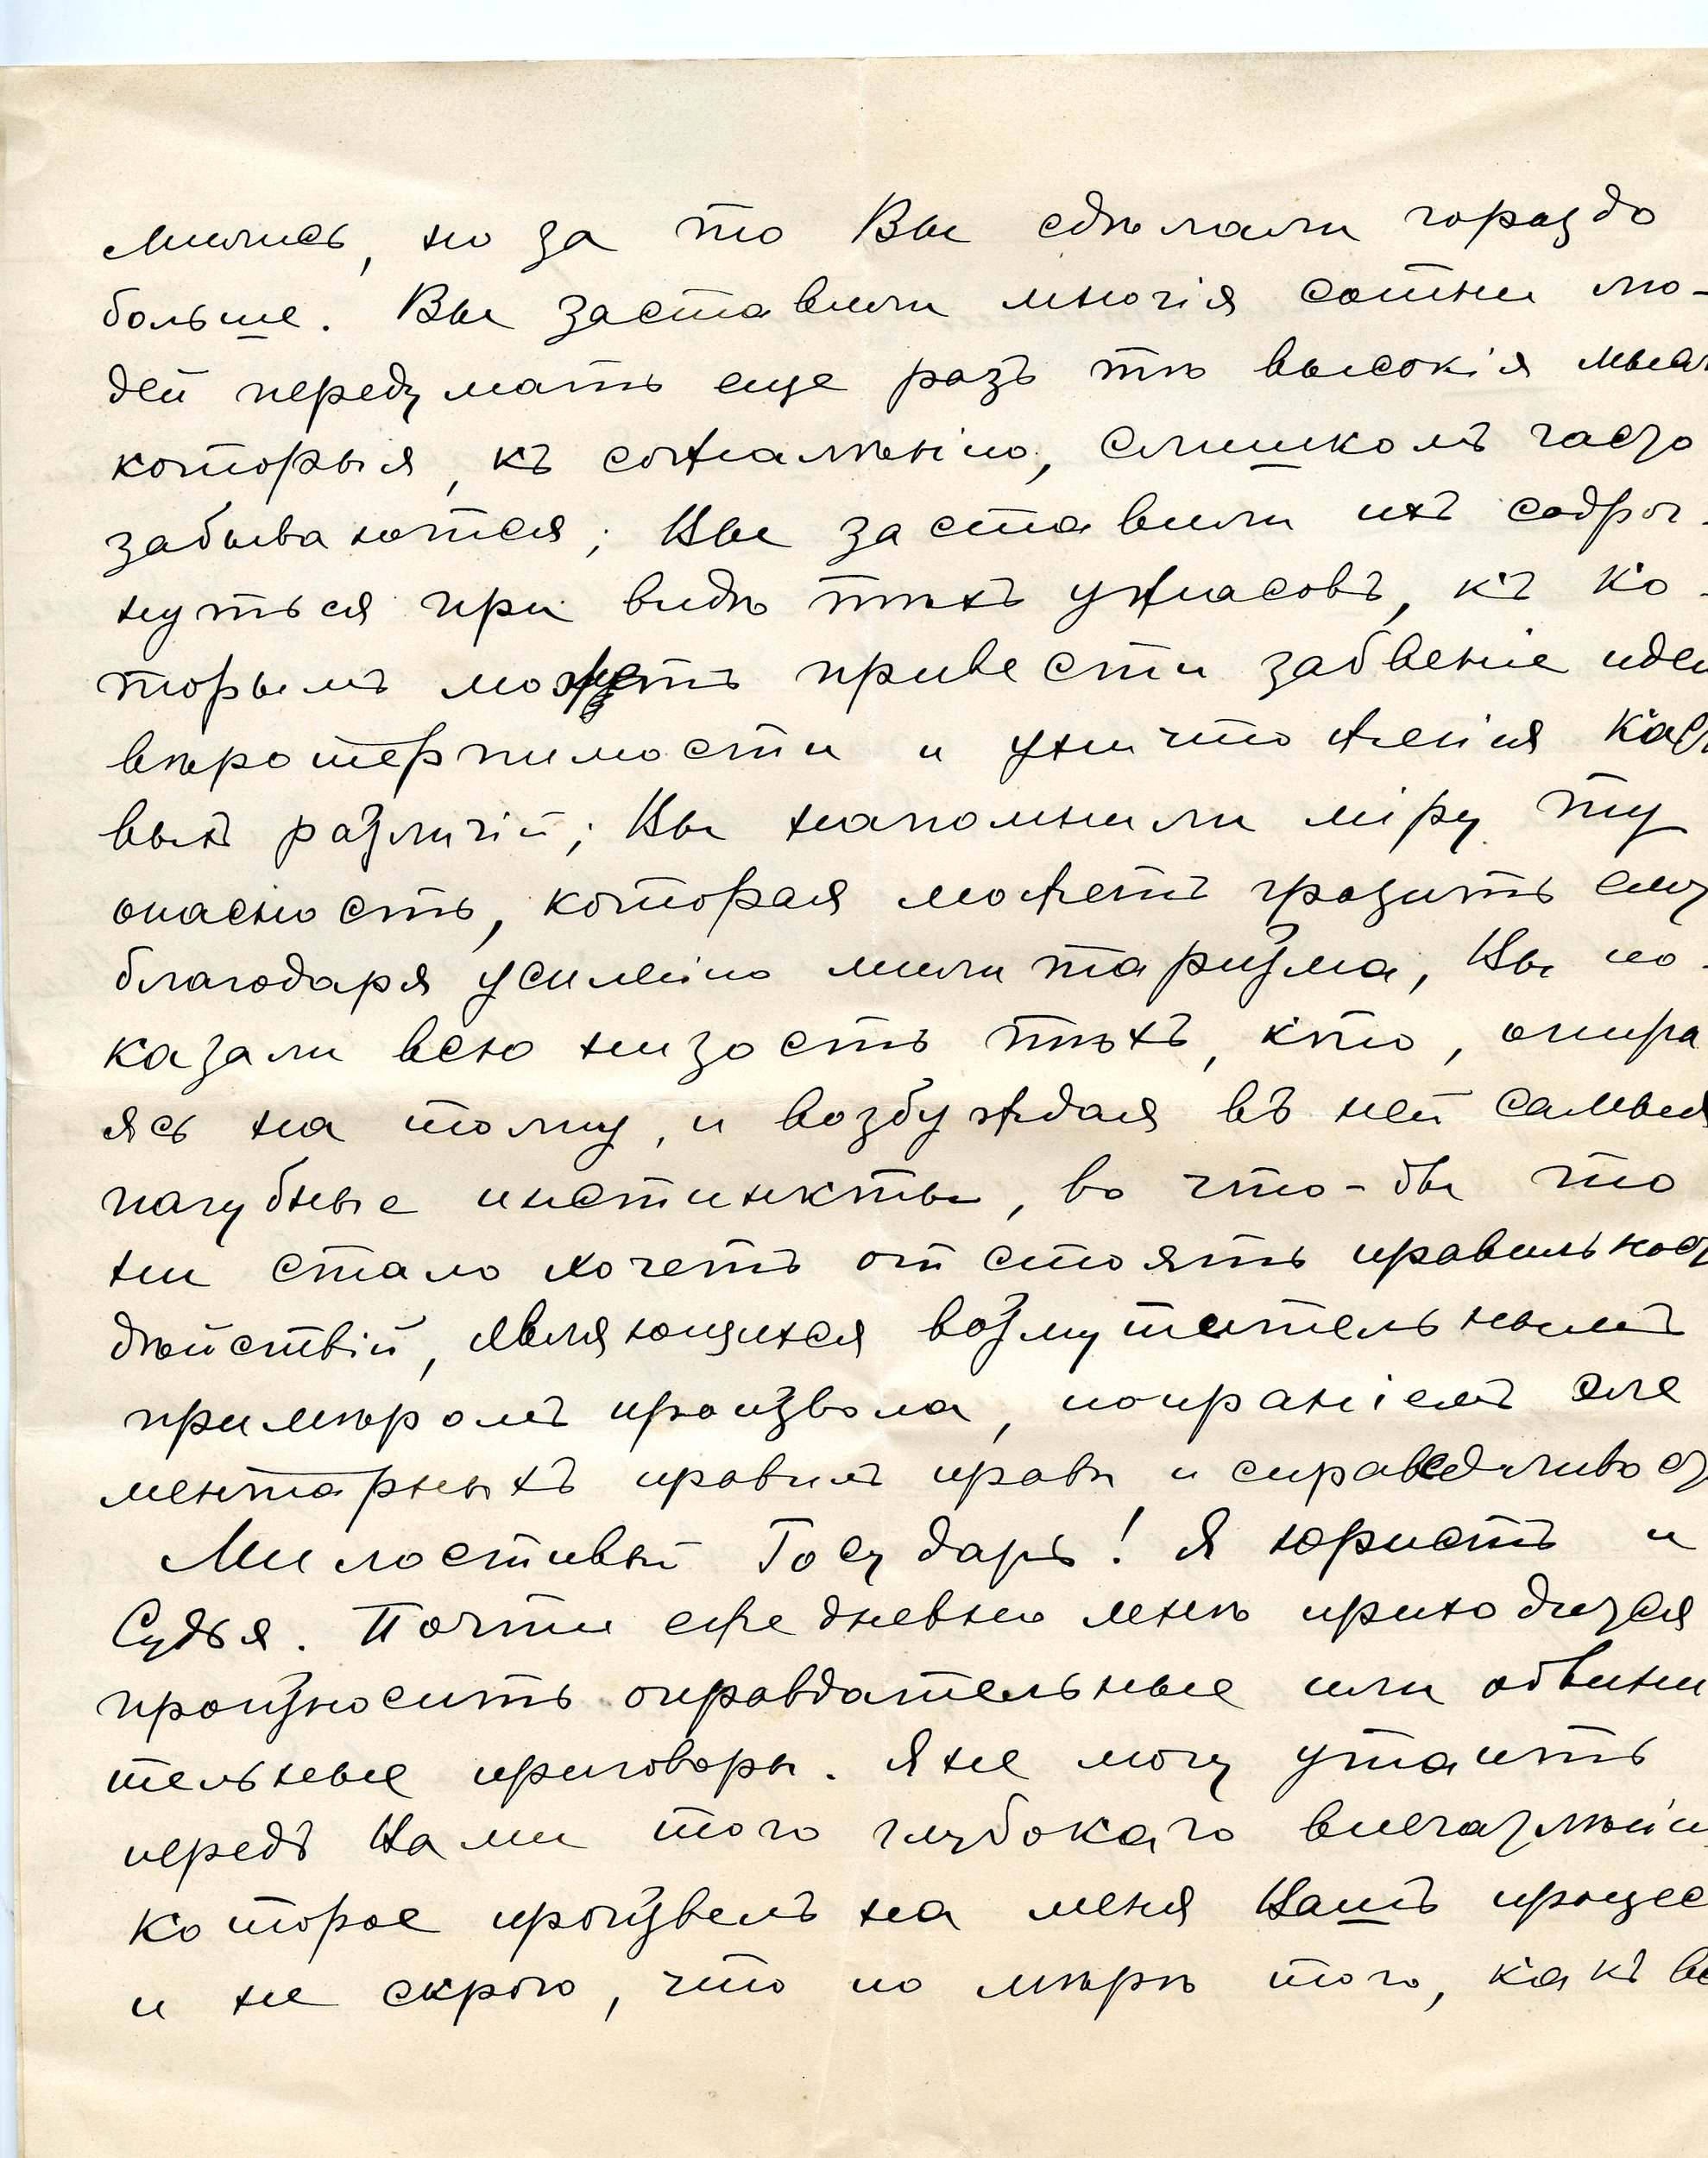 мились, но за то Вы сдѣлали гораздо
больше. Вы заставили многія сотни лю-
дей передумать еще разъ тѣ высокія мысл
которыя, къ сожалѣнію, слишкомъ часто
забываются; Вы заставили ихъ содрог-
нуться при видѣ тѣхъ ужасовъ, къ ко-
торымъ можетъ привести забвеніе идеи
вѣротерпимости и уничтоженія касто
выхъ различій; Вы напомнили міру ту
опасность, которая можетъ грозить ему
благодаря усиленію милитаризма, Вы по-
казали всю низость тѣхъ, кто, опира
ясь на толпу, и возбуждая въ ней самыя
пагубные инстинкты, во что-бы то
ни стало хочетъ отстоять правильност
дѣйствій, являющихся возмутительнымъ
примѣромъ произвола, попраніемъ эле
ментарныхъ правилъ права и справедливост
Милостивый Государь! Я юристъ и
Судья. Почти ежедневно мнѣ приходится
произносить оправдательные или обвини
тельные приговоры. Я не могу утаить
передъ Вами того глубокаго впечатлѣнія
которое произвелъ на меня Вашъ процес
и не скрою, что по мѣрѣ того, какъ вс